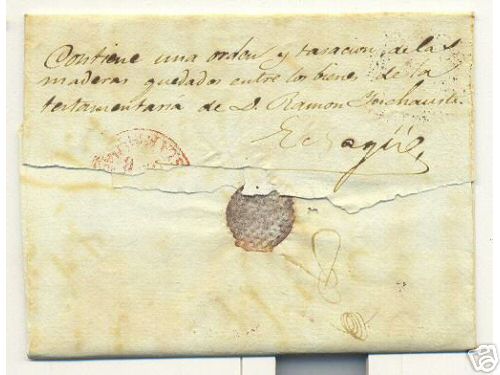 Contiene una orden y tasacion de las
maderas quedadas entre los bienes de la
testamentaria de D. Ramon
Echagüe
8